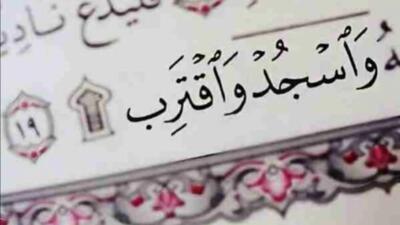 فليدع نادي
ـهُ وَٱسۡجُدۡ وَٱقۡتَرِب ۩ ١٩